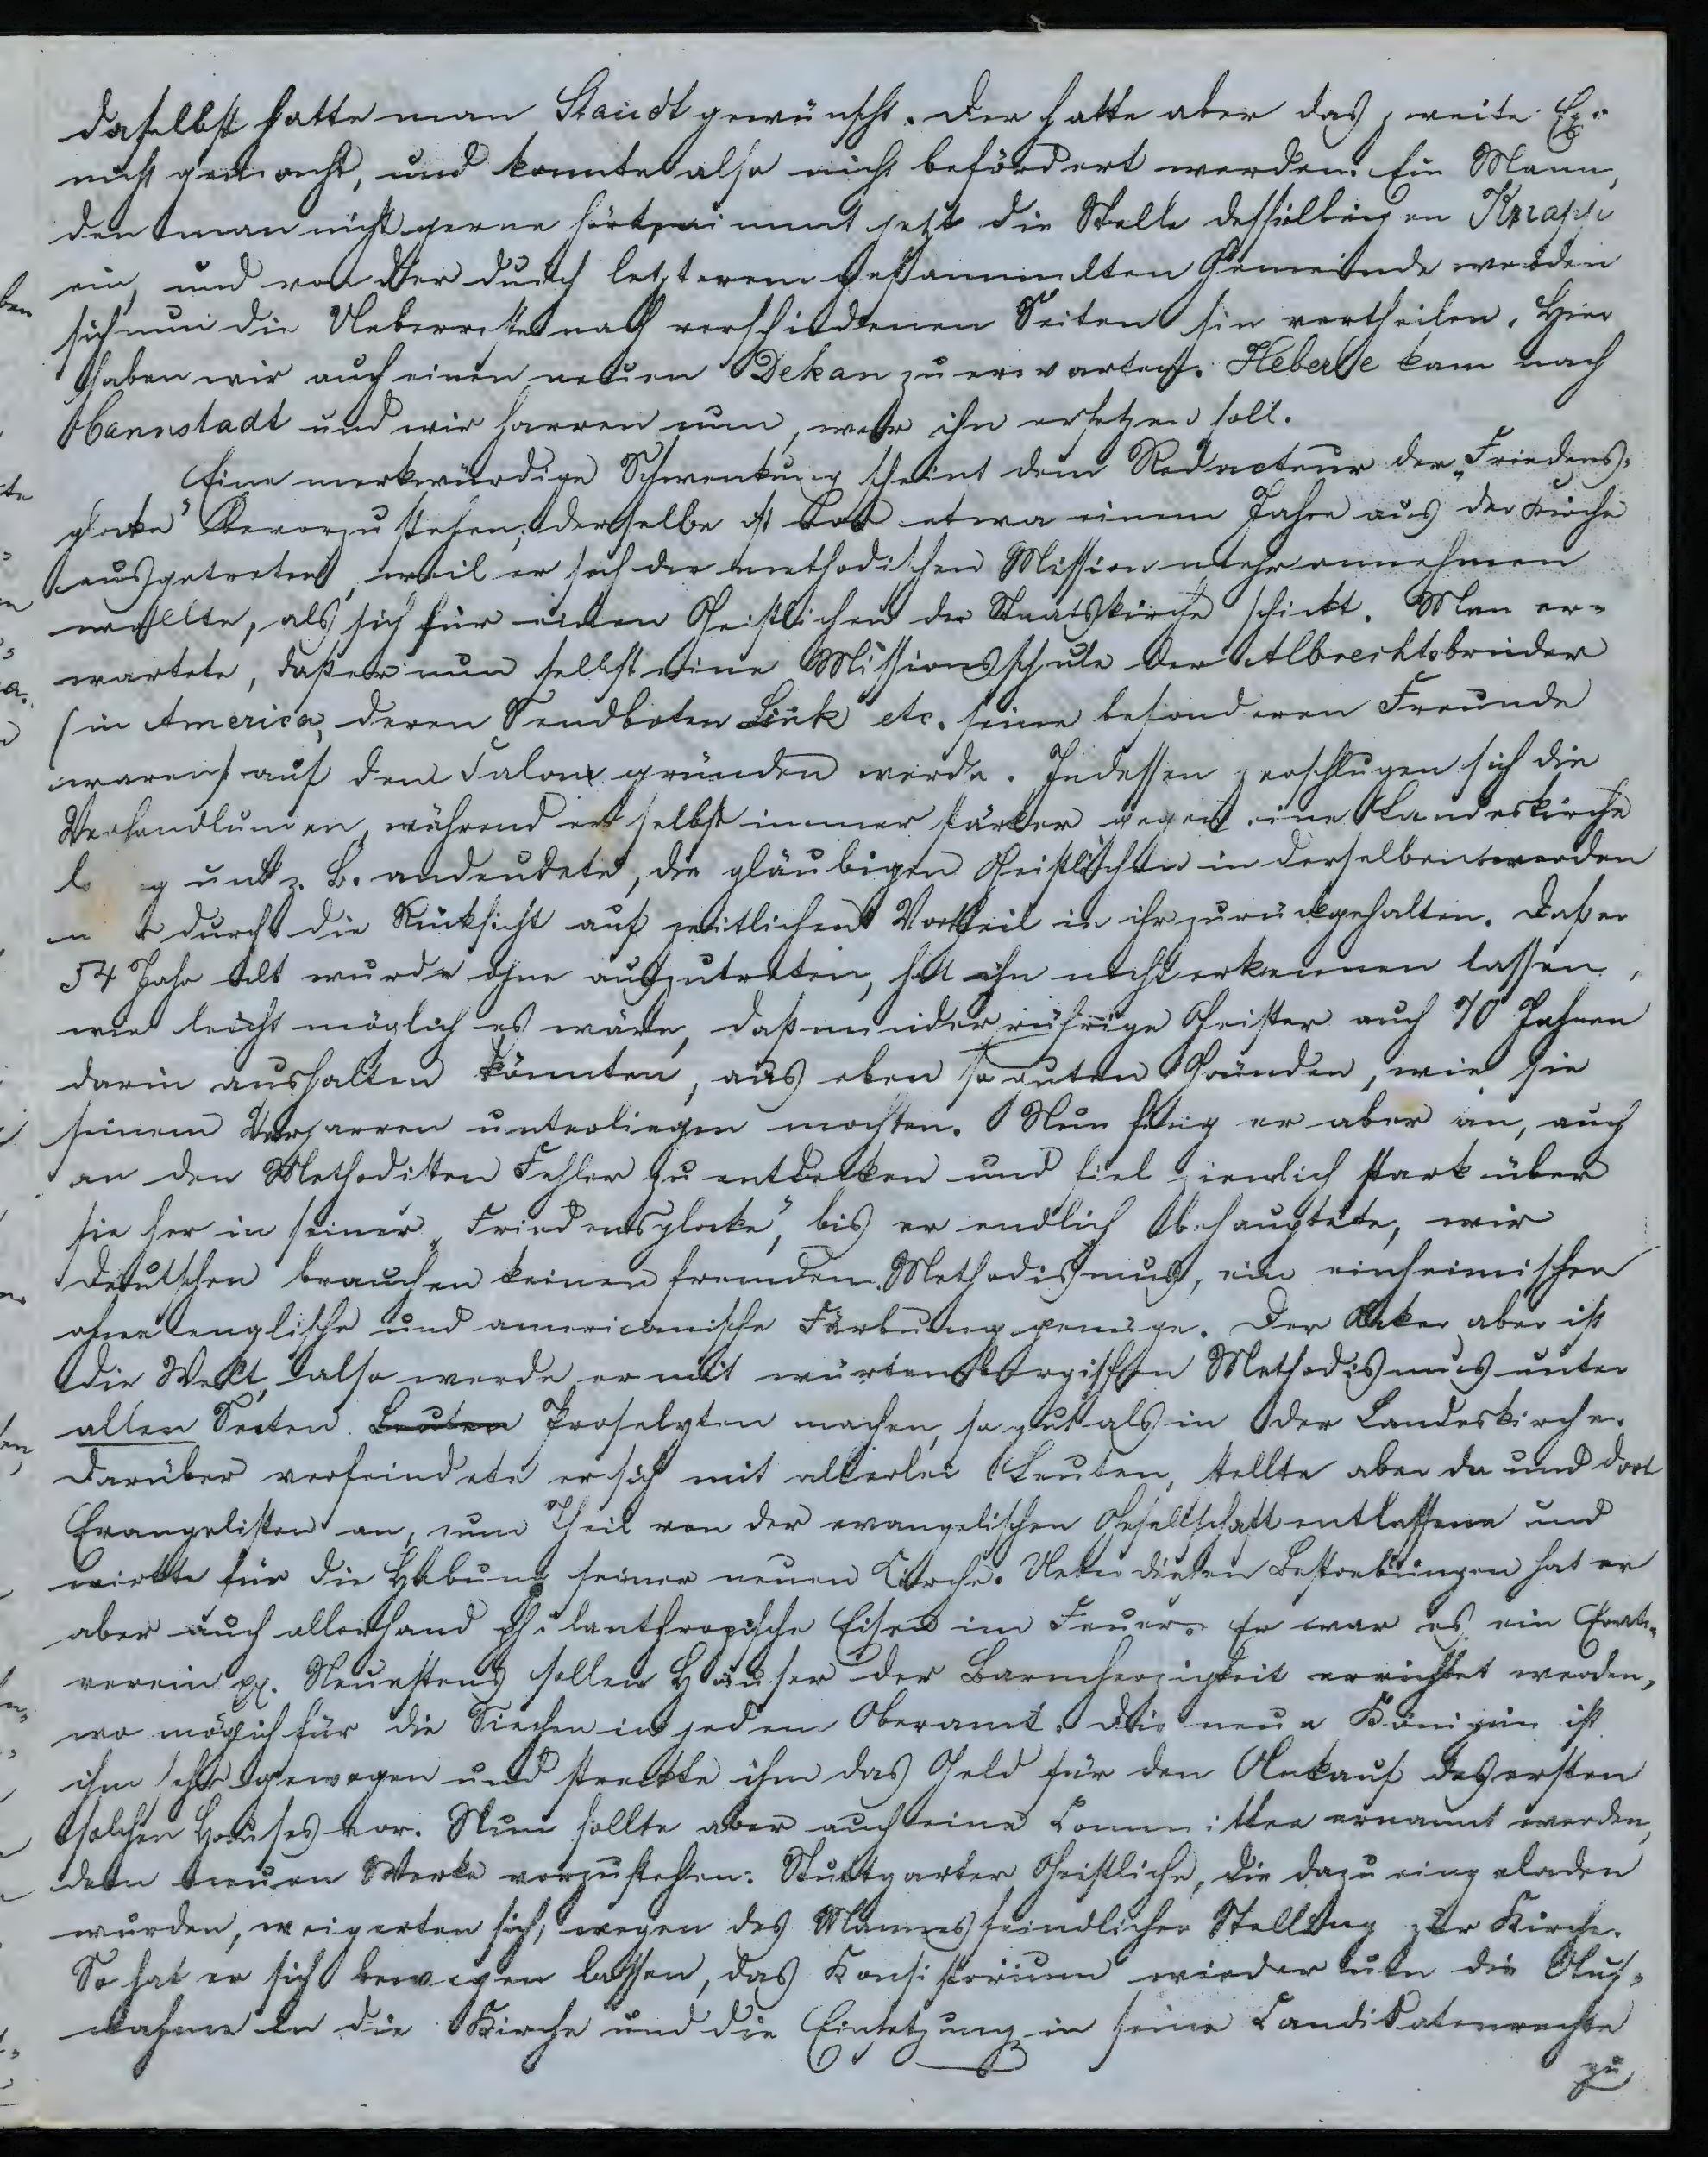 daselbst hatte man Staudt gewünscht. Der hatte aber das zweite Ex.
nicht gemacht, und konnte also nicht befördert werden. Ein Mann,
den man nicht gerne hört, nimmt jetzt die Stelle desselbigen Knapp
ein, und von der durch letzteren gesammelten Gemeinde werden
sich nun die Ueberreste nach verschiedenen Seiten hin vertheilen. Hier
haben wir auch einen neuen Dekan zu erwarten. Heberle kam nach
Cannstadt und wir harren nun, wer ihn ersetzen soll.
Eine merkwürdige Schwenkung scheint dem Redacteur der „Friedens-
glocke" bevorzustehen; derselbe ist vor etwa einem Jahre aus der Kirche
ausgetreten, weil er sich der methodischen Mission mehr annehmen
wollte, als sich für einen Geistlichen der Staatskirche schickt. Man er-
wartete, daß er nun selbst eine Missionsschule der Albrechtsbrüder
(in America, deren Sendboten Link etc. seine besonderen Freunde
waren) auf dem Salon gründen werde. Indessen zerschlugen sich die
Verhandlungen, während er selbst immer stärker gegen eine Landeskirche
und z. B. andeutete, die gläubigen Geistlichen in derselben werden
durch die Rücksicht auf zeitlichen Vortheil in ihr zurückgehalten. Daß er
54 Jahr alt wurde ohne auszutreten, hat ihn nicht erkennen lassen,
wie leicht möglich es wäre, daß minder rührige Geister auch 70 Jahren
darin aushalten könnten, aus eben so guten Gründen, wie sie
seinem Verharren unterliegen mochten. Nun fing er aber an, auch
an den Methodisten Fehler zu entdecken und fiel ziemlich stark über
sie her in seiner „Friedensglocke", bis er endlich behauptete, wir
Deutschen brauchen keinen fremden Methodismus, ein einheimischer
ohne englische und americanische Färbung genüge. Der Acker aber ist
die Welt, also werde er mit würtembergischen Methodismus unter
allen Secten Leuten Proselyten machen, so gut als in der Landeskirche.
Darüber verfeindete er sich mit allerlei Leuten, stellte aber da und dort
Evangelisten an, zum Theil von der evangelischen Gesellschaft entlassene und
wirkte für die Hebung seiner neuen Kirche. Neben diesen Bestrebungen hat er
aber auch allerhand philanthropische Eisen im Feuer. Er war es ein
verein pp. Neuestens sollen Häuser der Barmherzigkeit errichtet werden,
wo möglich für die Siechen in jedem Oberamt. Die neue Königin ist
ihm sehr gewogen und streckte ihm das Geld für den Ankauf des ersten
solchen Hauses vor. Nun sollte aber auch eine Committee ernannt werden,
dem neuen Werke vorzustehen: Stuttgarter Geistliche, die dazu eingeladen
wurden, weigerten sich, wegen des Mannes feindlicher Stellung zur Kirche.
So hat er sich bewegen lassen, das Konsistorium wieder um die Auf-
nahme in die Kirche und die Einsetzung in seine Candidatenrechte
zu